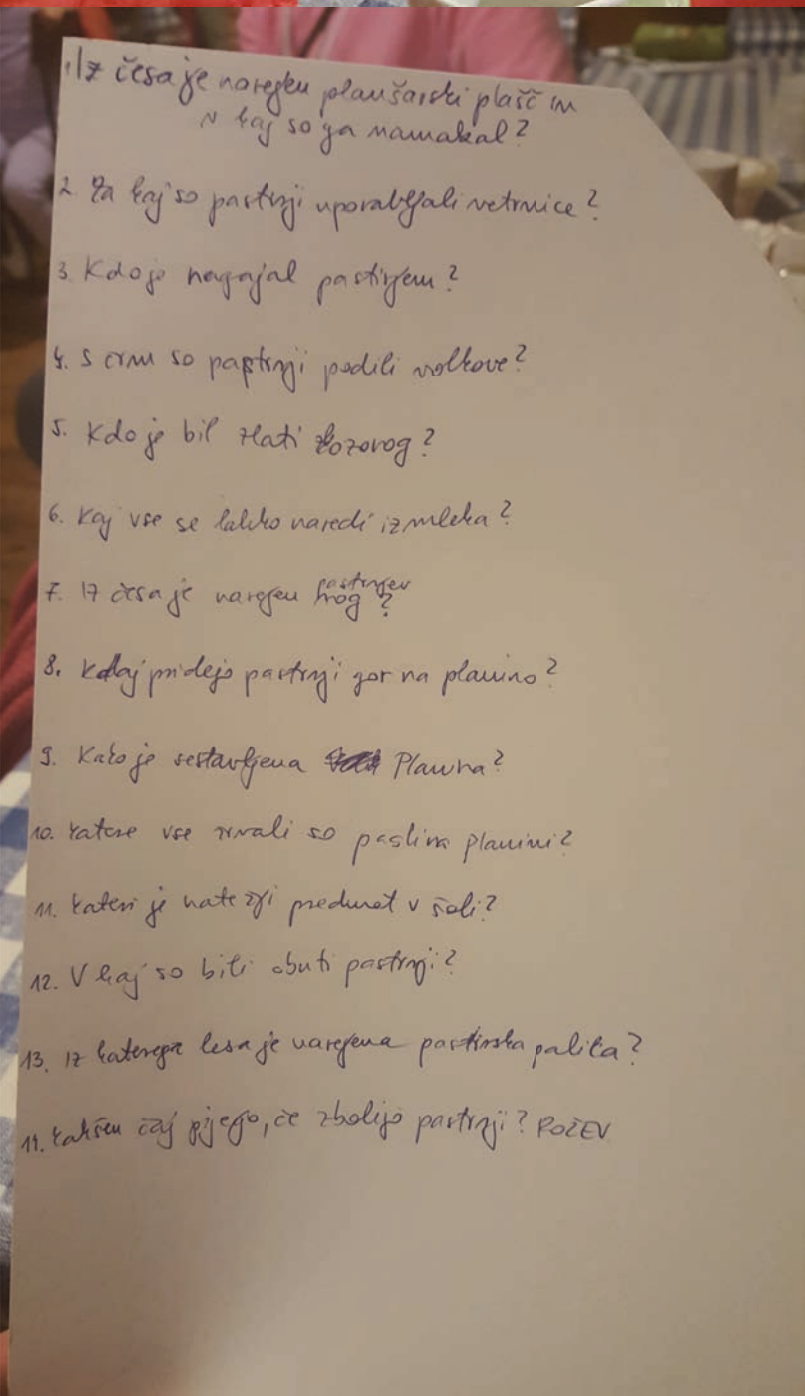 1. Iz česa je narejen planšarski plašč in
v kaj so ga namakal?
2. Za kaj so pastirji uporabljali vetrnice?
3. Kdo je nagajal pastirjem?
4. S čim so pastirji podili volkove?
5. Kdo je bil zlati zlozorog?
6. Kaj vse se lahko naredi iz mleka?
7. Iz česa je narejen pastirjev rog?
8. Kdaj pridejo pastirji gor na planino?
9. Kako je sestavljena Planina?
10. Katere vse živali so pasli na planini?
11. Kateri je natežji predmet v šoli?
12. V kaj so bili obuti pastirji?
13. Iz katerega lesa je narejena pastirska palica?
14. Kakšen čaj pijejo, če zbolijo pastirji? ROŽEV